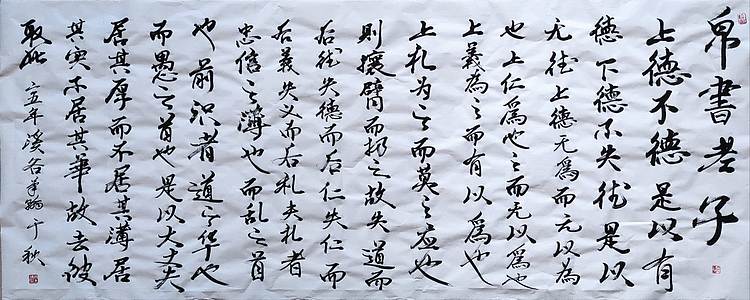 帛書老子
上德不德是以有
德下德不失德是以
无德上德无為而无以為
也上仁為之而无以為也
上義為之而有以為也
上礼为之而莫之应也
則攘臂而扔之故失道而
后德失德而后仁失仁而
后義失义而后礼夫礼者
忠信之薄也而乱之首
也前识者道之华也
而愚之首也是以大丈夫
居其厚而不居其薄居
其实不居其華故去彼
取此 二五年溪谷于秋